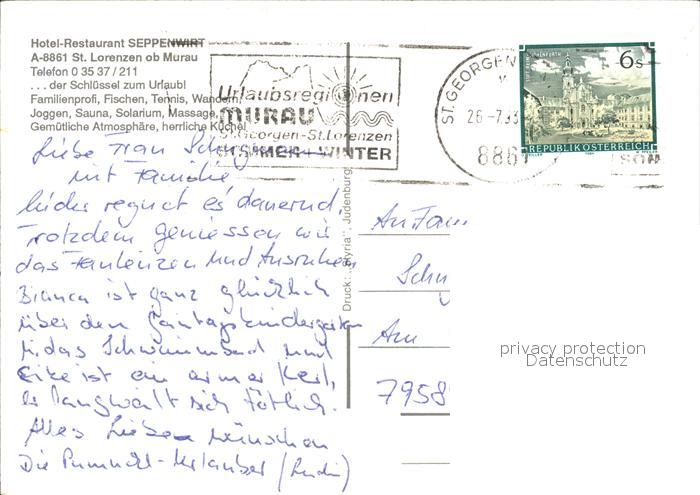 Hotel-Restaurant SEPPENWIRT
A-8861 St. Lorenzen ob Murau
Telefon 0 35 37 / 211
. . . der Schlüssel zum Urlaub!
Familienprofi, Fischen, Tennis, Wandern,
Joggen, Sauna, Solarium, Massage,
Gemütliche Atmosphäre, herrliche Küche!
Urlaubsregionen
MURAU
St. Georgen - St. Lorenzen
SOMMER + WINTER
ST. GEORGEN
26.-7.93
8861
6 S
REPUBLIK ÖSTERREICH
Liebe Frau
mit Familie
leider regnet es dauernd.
Trotzdem genessen wir
das Faulenzen und Ausruhen
Bianca ist ganz glücklich
über den Ganztagskindergarten
u. das Schwimmbad und
Eike ist ein armer Kerl,
er langweilt sich tödlich.
Alles Liebe wünschen
Die Urlauber
Druck: "Styria", Judenburg
An Fam
Am
7958
privacy protection
Datenschutz